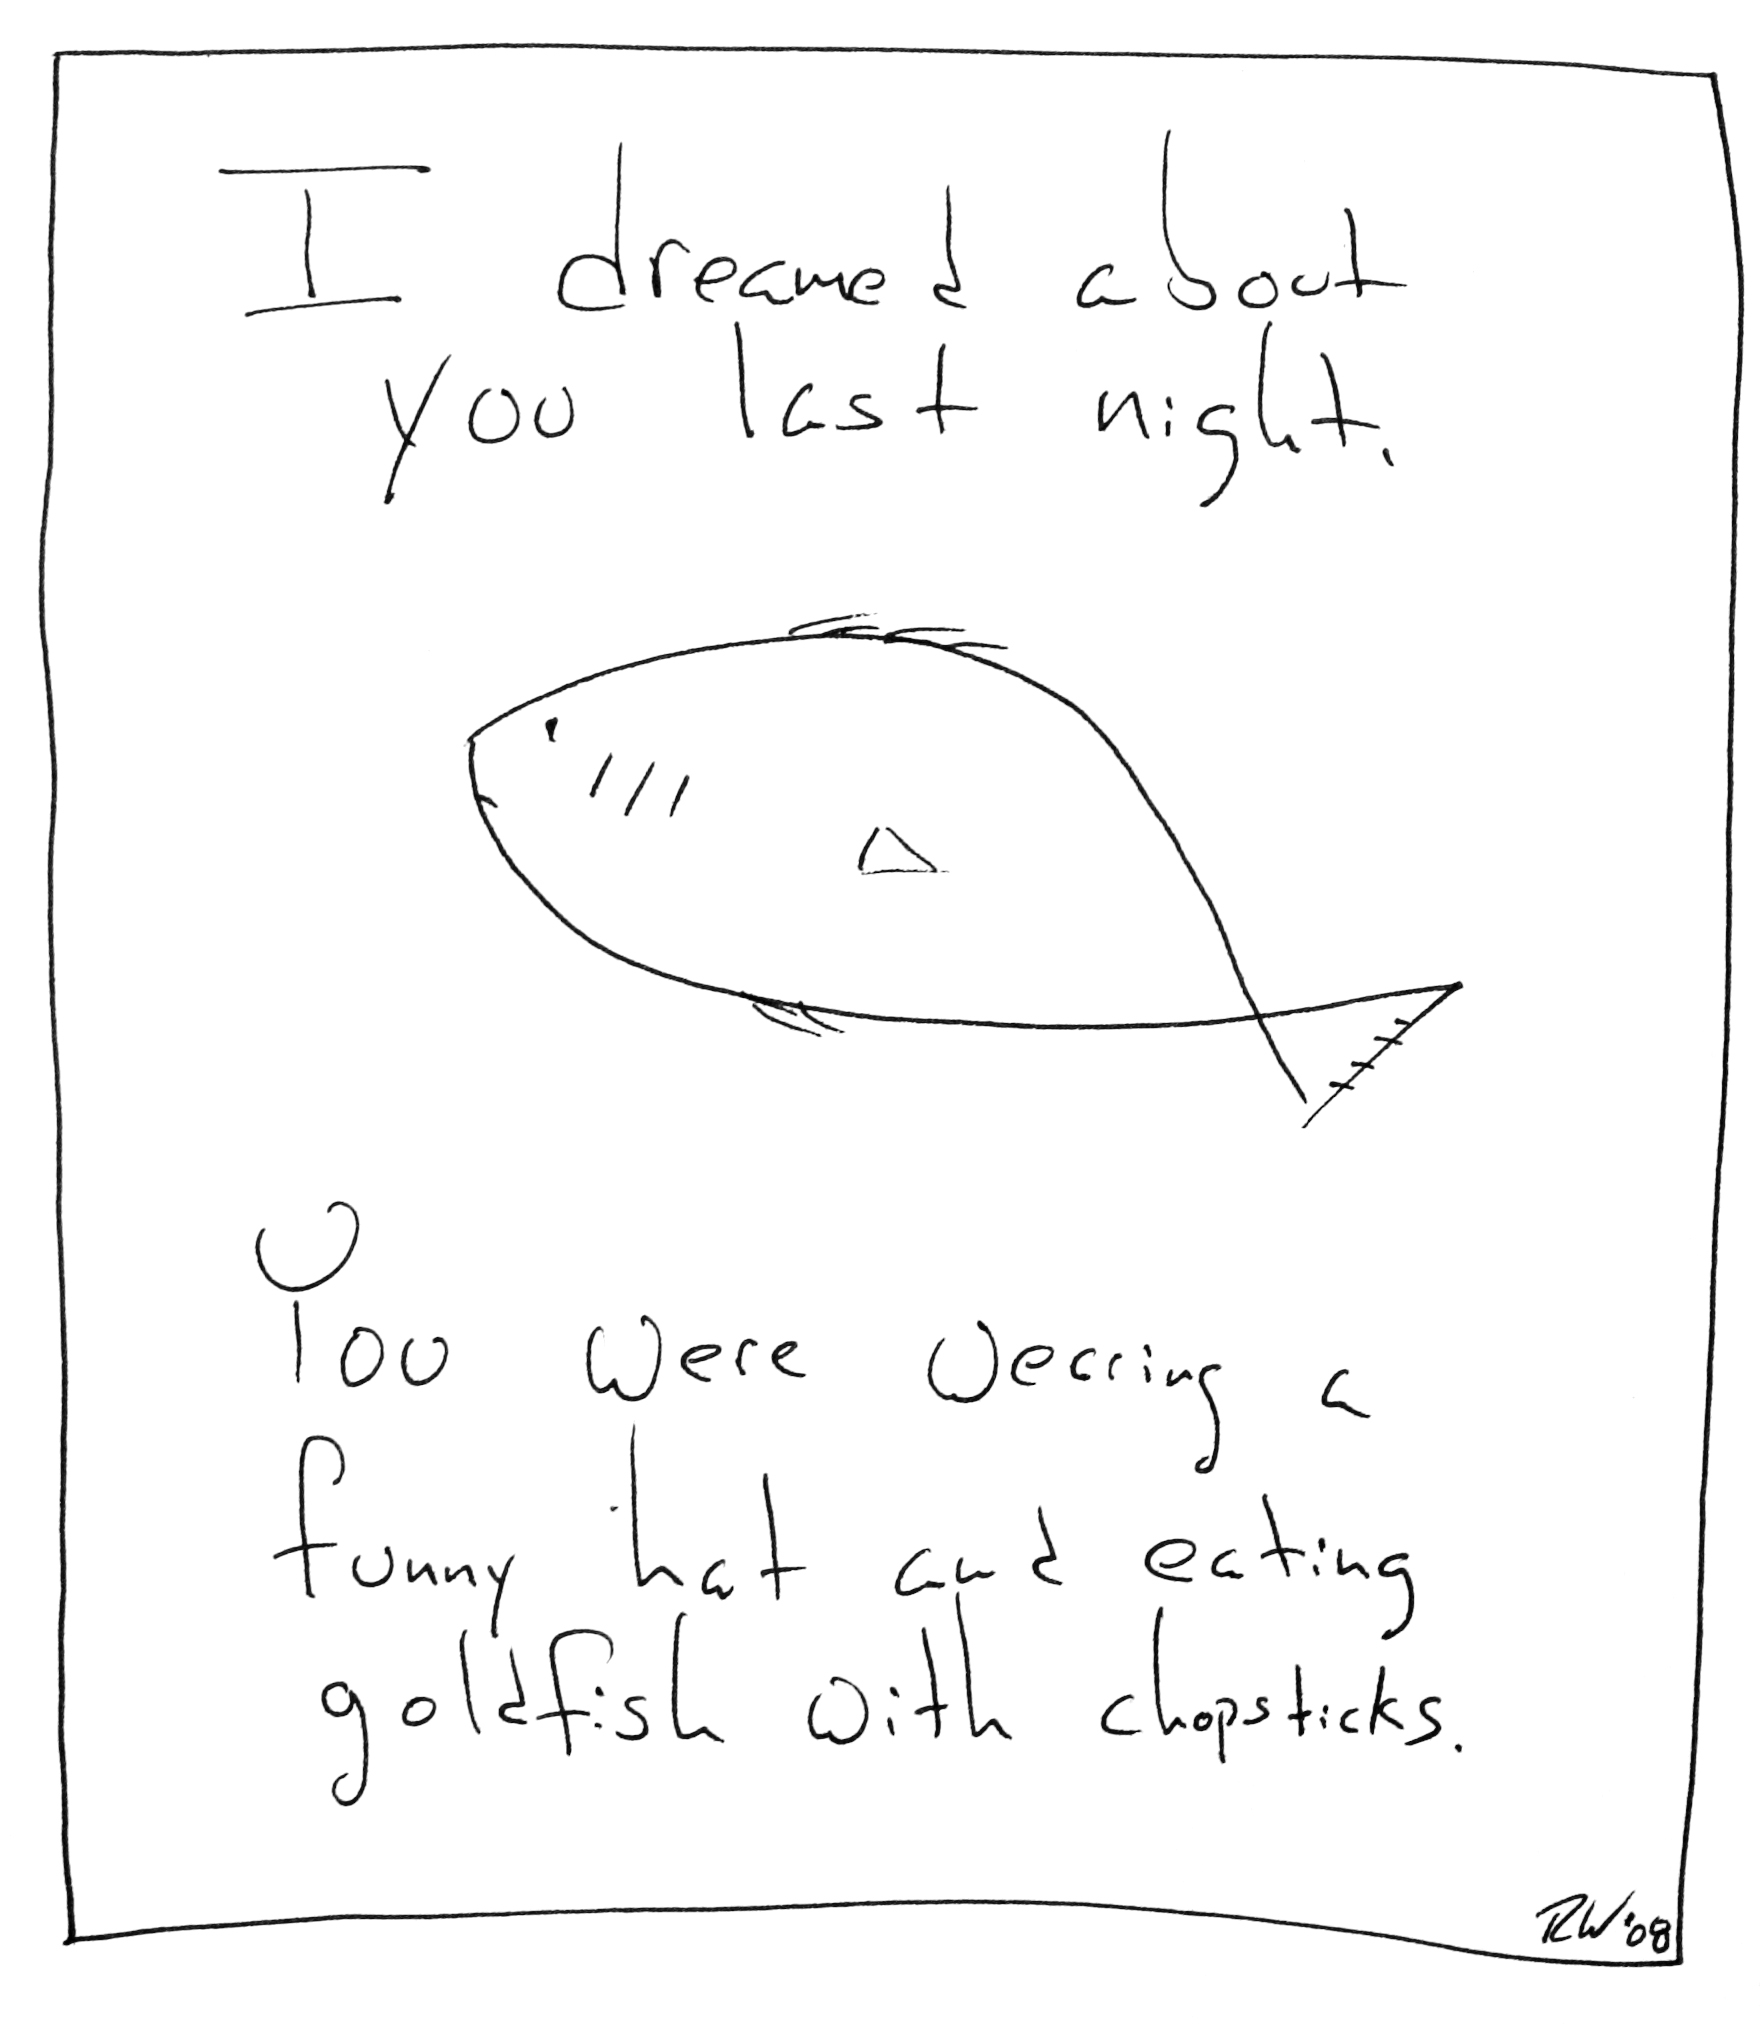 I dreamed about
you last night.
You were wearing a
funny hat and eating
goldfish with chopsticks.
RW '08